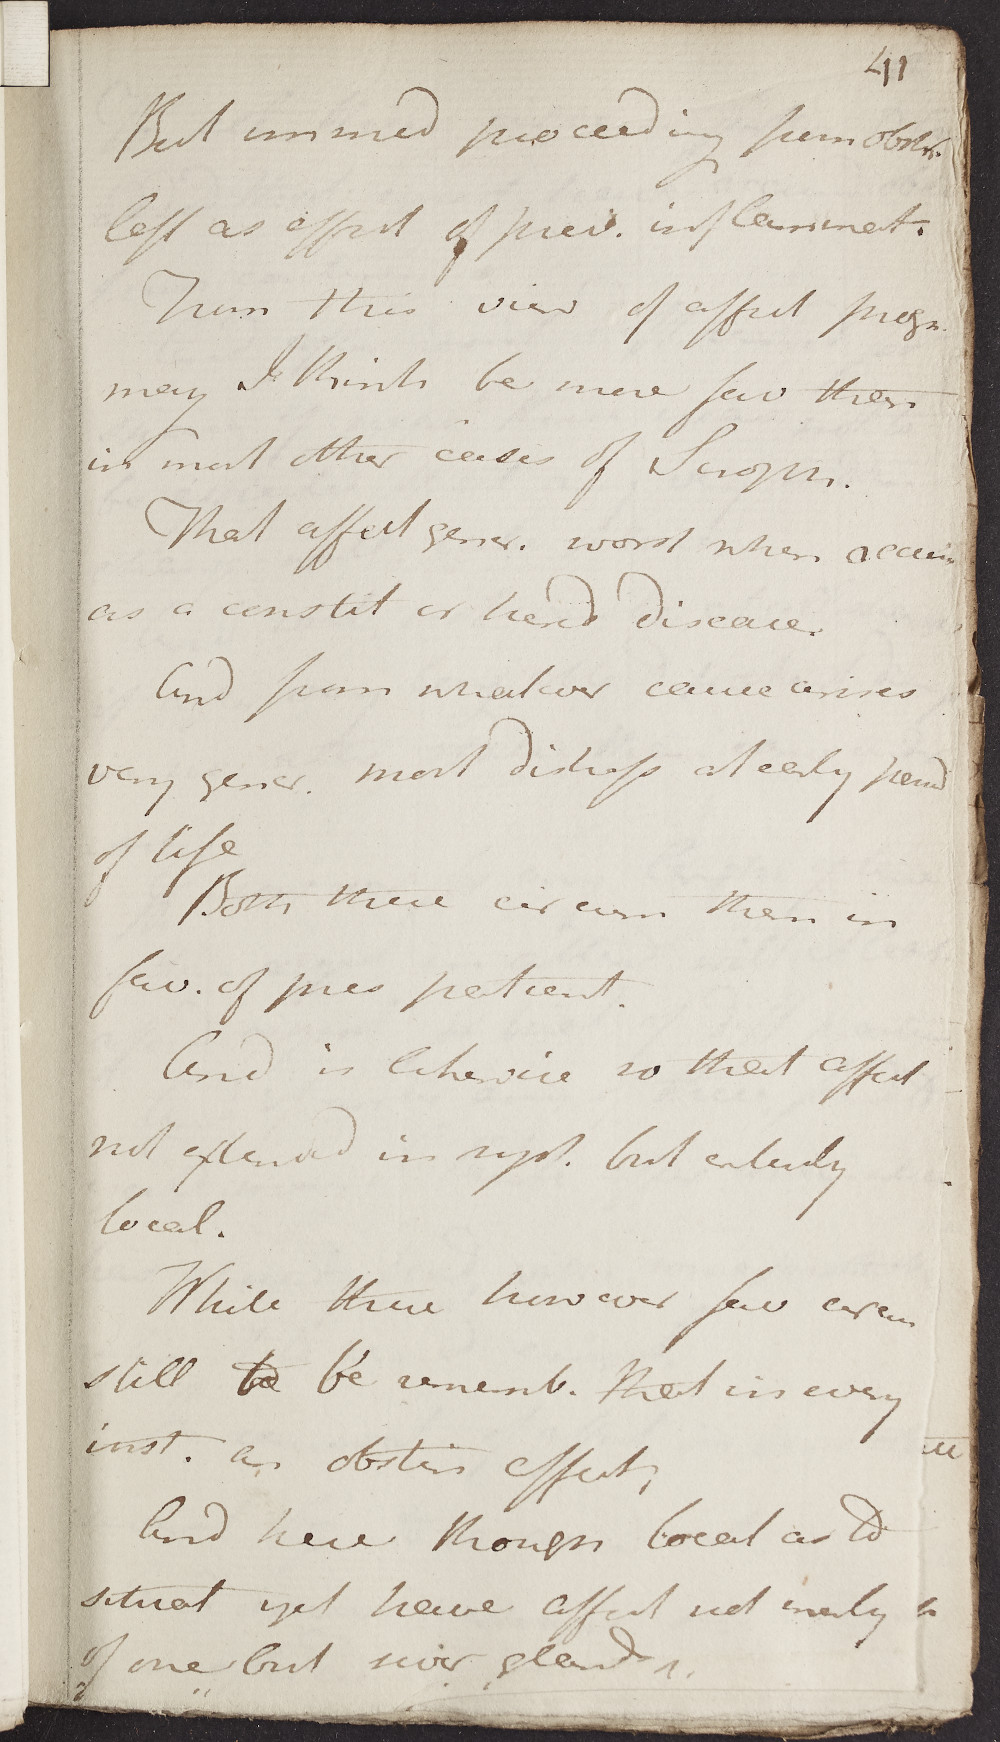 41
But immed proceeding from obstr.
left as effect of prev. inflammat.
From this view of affect progn.
may I think be more fav then
in most other cases of Scroph.
That affect gener. worst when occurs
as a constit or hered disease.
And from whatever cause arises
very gener. most distress at early period
of life
Both these circum then in
fav. of pres patient.
And is likewise so that affect
not extended in syst. but entirely
local.
While these however fav circum
still to be rememb. that in every
inst. an obstin affect;
And here though local as to
situat yet have affect not merely
of one but sever glands.